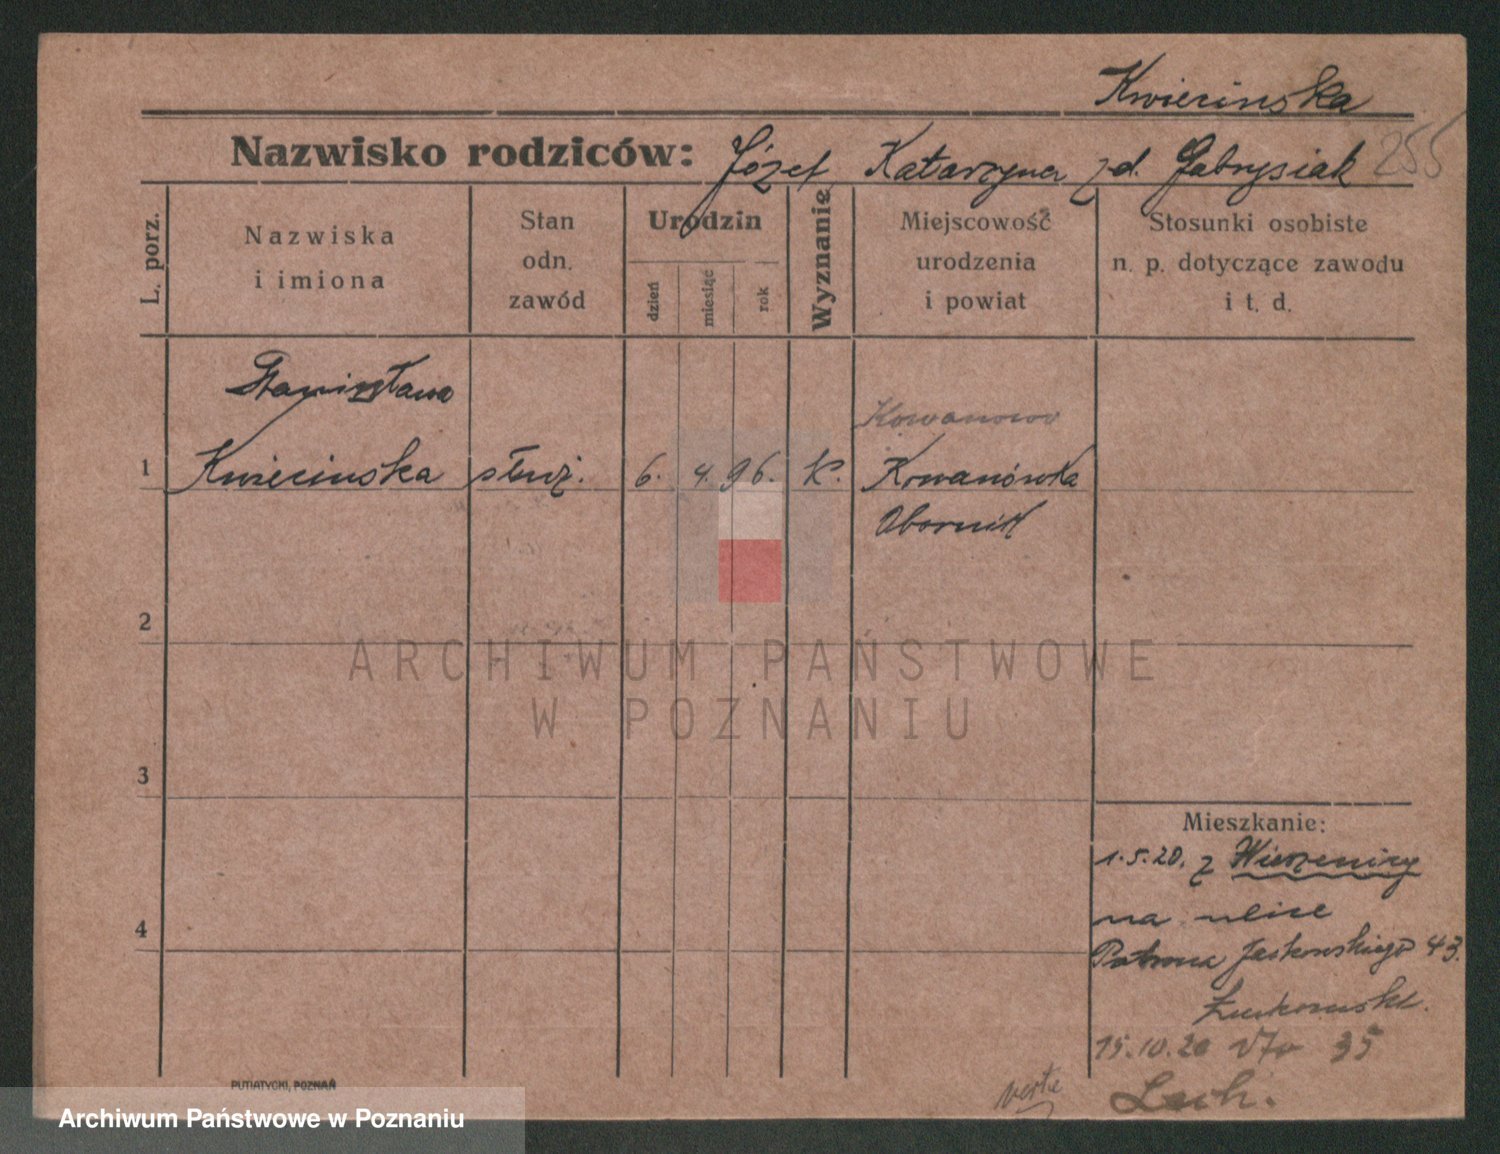 Kwiecinska
Nazwisko rodziców: Józef Katarzyna zd. Gabrysiak 255
L. porz.
Nazwiska
i imiona
Stan
odn.
zawód
Urodzin
dzień
miesiąc
rok
Wyznanie
Miejscowość
urodzenia
i powiat
Stosunki osobiste
n. p. dotyczące zawodu
i t. d.
Stanisława
Kowanowo
1 Kwiecinska służ. 6. 4. 96. k. Kowanówka
Obornik
2
ARCHIWUM PAŃSTWOWE
W POZNANIU
3
Mieszkanie:
1.5.20. z Wierzenicy
na ulice
4
Patrona Jackowskiego 43.
15.10.20 35
verte
PUTIATYCKI, POZNAŃ
Archiwum Państwowe w Poznaniu